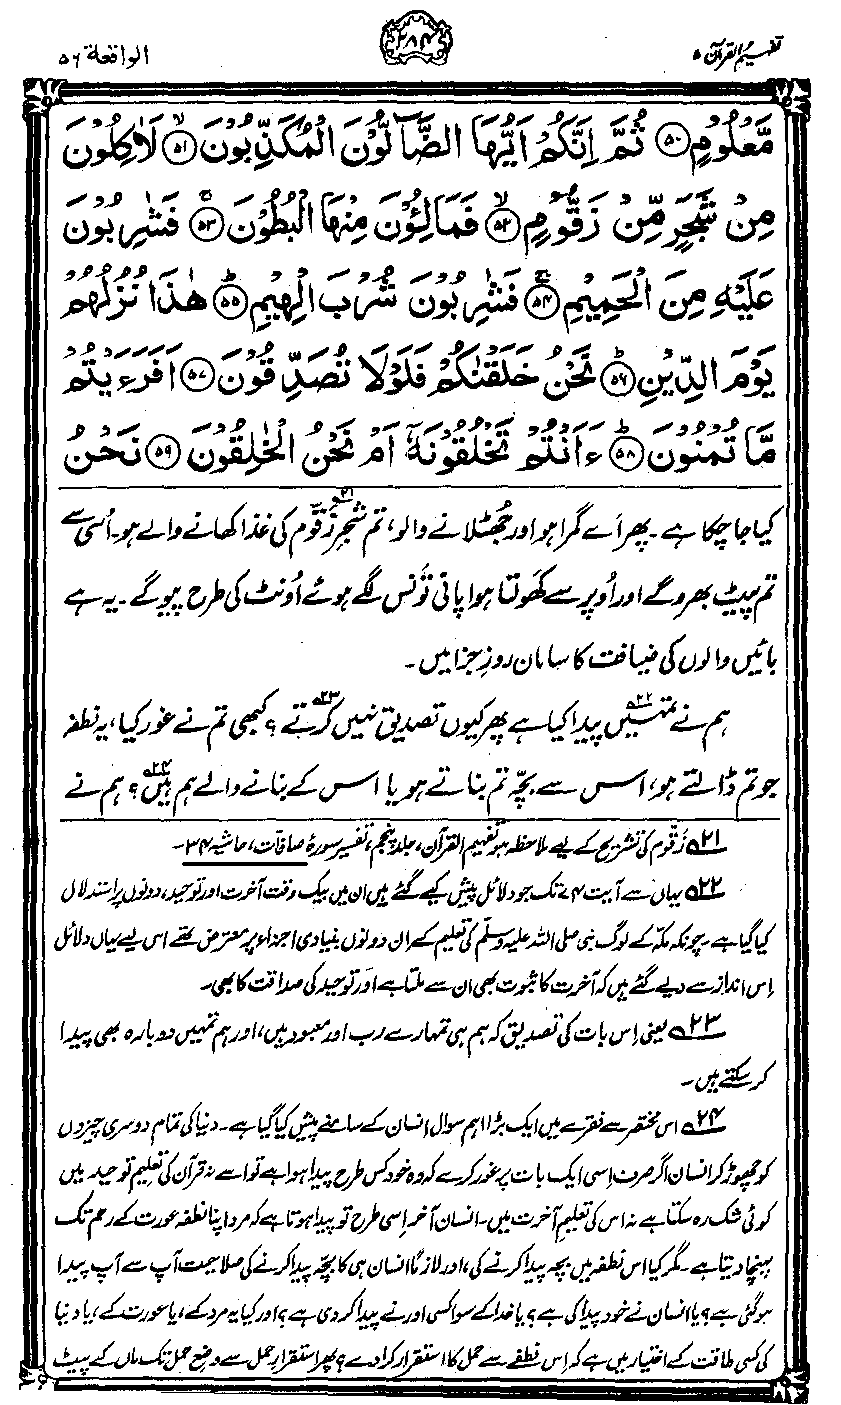 تفہیم القرآن ۵
۲۸۴
الواقعة ۵۶
مَّعْلُوْمٍ ۝۵۰ ثُمَّ اِنَّكُمْ اَيُّهَا الضَّآلُّوْنَ الْمُكَذِّبُوْنَ ۝۵۱ لَاٰكِلُوْنَ
مِنْ شَجَرٍ مِّنْ زَقُّوْمٍ ۝۵۲ فَمَالِـُٔوْنَ مِنْهَا الْبُطُوْنَ ۝۵۳ فَشٰرِبُوْنَ
عَلَيْهِ مِنَ الْحَمِيْمِ ۝۵۴ فَشٰرِبُوْنَ شُرْبَ الْهِيْمِ ۝۵۵ هٰذَا نُزُلُهُمْ
يَوْمَ الدِّيْنِ ۝۵۶ نَحْنُ خَلَقْنٰكُمْ فَلَوْلَا تُصَدِّقُوْنَ ۝۵۷ اَفَرَءَيْتُمْ
مَّا تُمْنُوْنَ ۝۵۸ ءَاَنْتُمْ تَخْلُقُوْنَهٗٓ اَمْ نَحْنُ الْخٰلِقُوْنَ ۝۵۹ نَحْنُ
کیا جا چکا ہے۔ پھر اَے گمراہو اور جُھٹلانے والو، تم شجرِ زقّوم ۲۱ کی غذا کھانے والے ہو۔ اُسی سے
تم پیٹ بھرو گے اور اُوپر سے کَھولتا ہوا پانی تَونس لگے ہوئے اُونٹ کی طرح پیو گے۔ یہ ہے
بائیں والوں کی ضیافت کا سامان روزِ جزا میں۔
ہم نے تمہیں ۲۲ پیدا کیا ہے پھر کیوں تصدیق نہیں کرتے ۲۳؟ کبھی تم نے غور کیا، یہ نطفہ
جو تم ڈالتے ہو، اس سے بچّہ تم بناتے ہو یا اس کے بنانے والے ہم ہیں ۲۴؟ ہم نے
۲۱ زَقّوم کی تشریح کے لیے ملاحظہ ہو تفہیم القرآن، جلد پنجم، تفسیر سورۂ صافّات، حاشیہ ۳۴۔
۲۲ یہاں سے آیت ۷۴ تک جو دلائل پیش کیے گئے ہیں ان میں بیک وقت آخرت اور توحید، دونوں پر استدلال
کیا گیا ہے۔ چونکہ مکّہ کے لوگ نبی صلی اللہ علیہ وسلّم کی تعلیم کے ان دونوں بنیادی اجزاء پر معترض تھے اس لیے یہاں دلائل
اِس انداز سے دیے گئے ہیں کہ آخرت کا ثبوت بھی ان سے ملتا ہے اور توحید کی صداقت کا بھی۔
۲۳ یعنی اِس بات کی تصدیق کہ ہم ہی تمہارے رب اور معبود ہیں، اور ہم تمہیں دوبارہ بھی پیدا
کر سکتے ہیں۔
۲۴ اس مختصر سے فقرے میں ایک بڑا اہم سوال انسان کے سامنے پیش کیا گیا ہے۔ دنیا کی تمام دوسری چیزوں
کو چھوڑ کر انسان اگر صرف اِسی ایک بات پر غور کرے کہ وہ خود کس طرح پیدا ہوا ہے تو اسے نہ قرآن کی تعلیمِ توحید میں
کوئی شک رہ سکتا ہے نہ اس کی تعلیمِ آخرت میں۔ انسان آخر اِسی طرح تو پیدا ہوتا ہے کہ مرد اپنا نطفہ عورت کے رحم تک
پہنچا دیتا ہے۔ مگر کیا اس نطفہ میں بچہ پیدا کرنے کی، اور لازماً انسان ہی کا بچّہ پیدا کرنے کی صلاحیت آپ سے آپ پیدا
ہو گئی ہے؟ یا انسان نے خود پیدا کی ہے؟ یا خدا کے سوا کسی اور نے پیدا کر دی ہے؟ اور کیا یہ مرد کے، یا عورت کے، یا دنیا
کی کسی طاقت کے اختیار میں ہے کہ اِس نطفے سے حمل کا استقرار کرا دے؟ پھر استقرارِ حمل سے وضعِ حمل تک ماں کے پیٹ